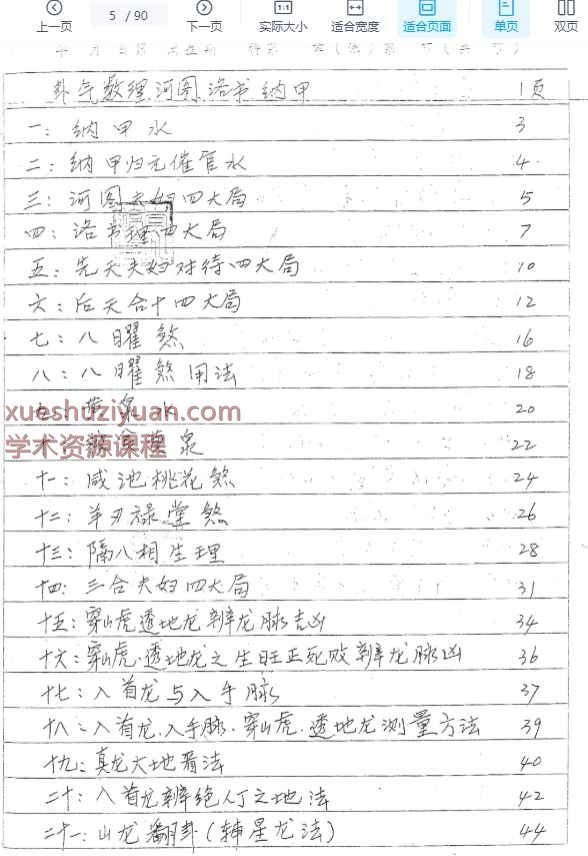 上一页 5 / 90 下一页 实际大小 适合宽度 适合页面 单页 双页
卦气数理河图洛书纳甲 1页
一：纳甲水 3
二：纳甲归元催官水 4
三：河图夫妇四大局 5
四：洛书 四大局 7
五：先天夫妇对待四大局 10
六：后天合十四大局 12
七：八曜煞 16
八：八曜煞用法 18
九：黄泉水 20
xueshuziyuan.com
十： 黄泉 22
学术资源课程
十一：咸池桃花煞 24
十二：羊刃禄堂煞 26
十三：隔八相生理 28
十四：三合夫妇四大局 31
十五：穿山虎透地龙辨龙脉吉凶 34
十六：穿山虎·透地龙之生旺正死败辨龙脉凶 36
十七：入首龙与入手脉 37
十八：入首龙.入手脉.穿山虎.透地龙测量方法 39
十九：真龙大地看法 40
二十：入首龙辨绝人丁之地法 42
二十一：山龙翻卦(辅星龙法) 44